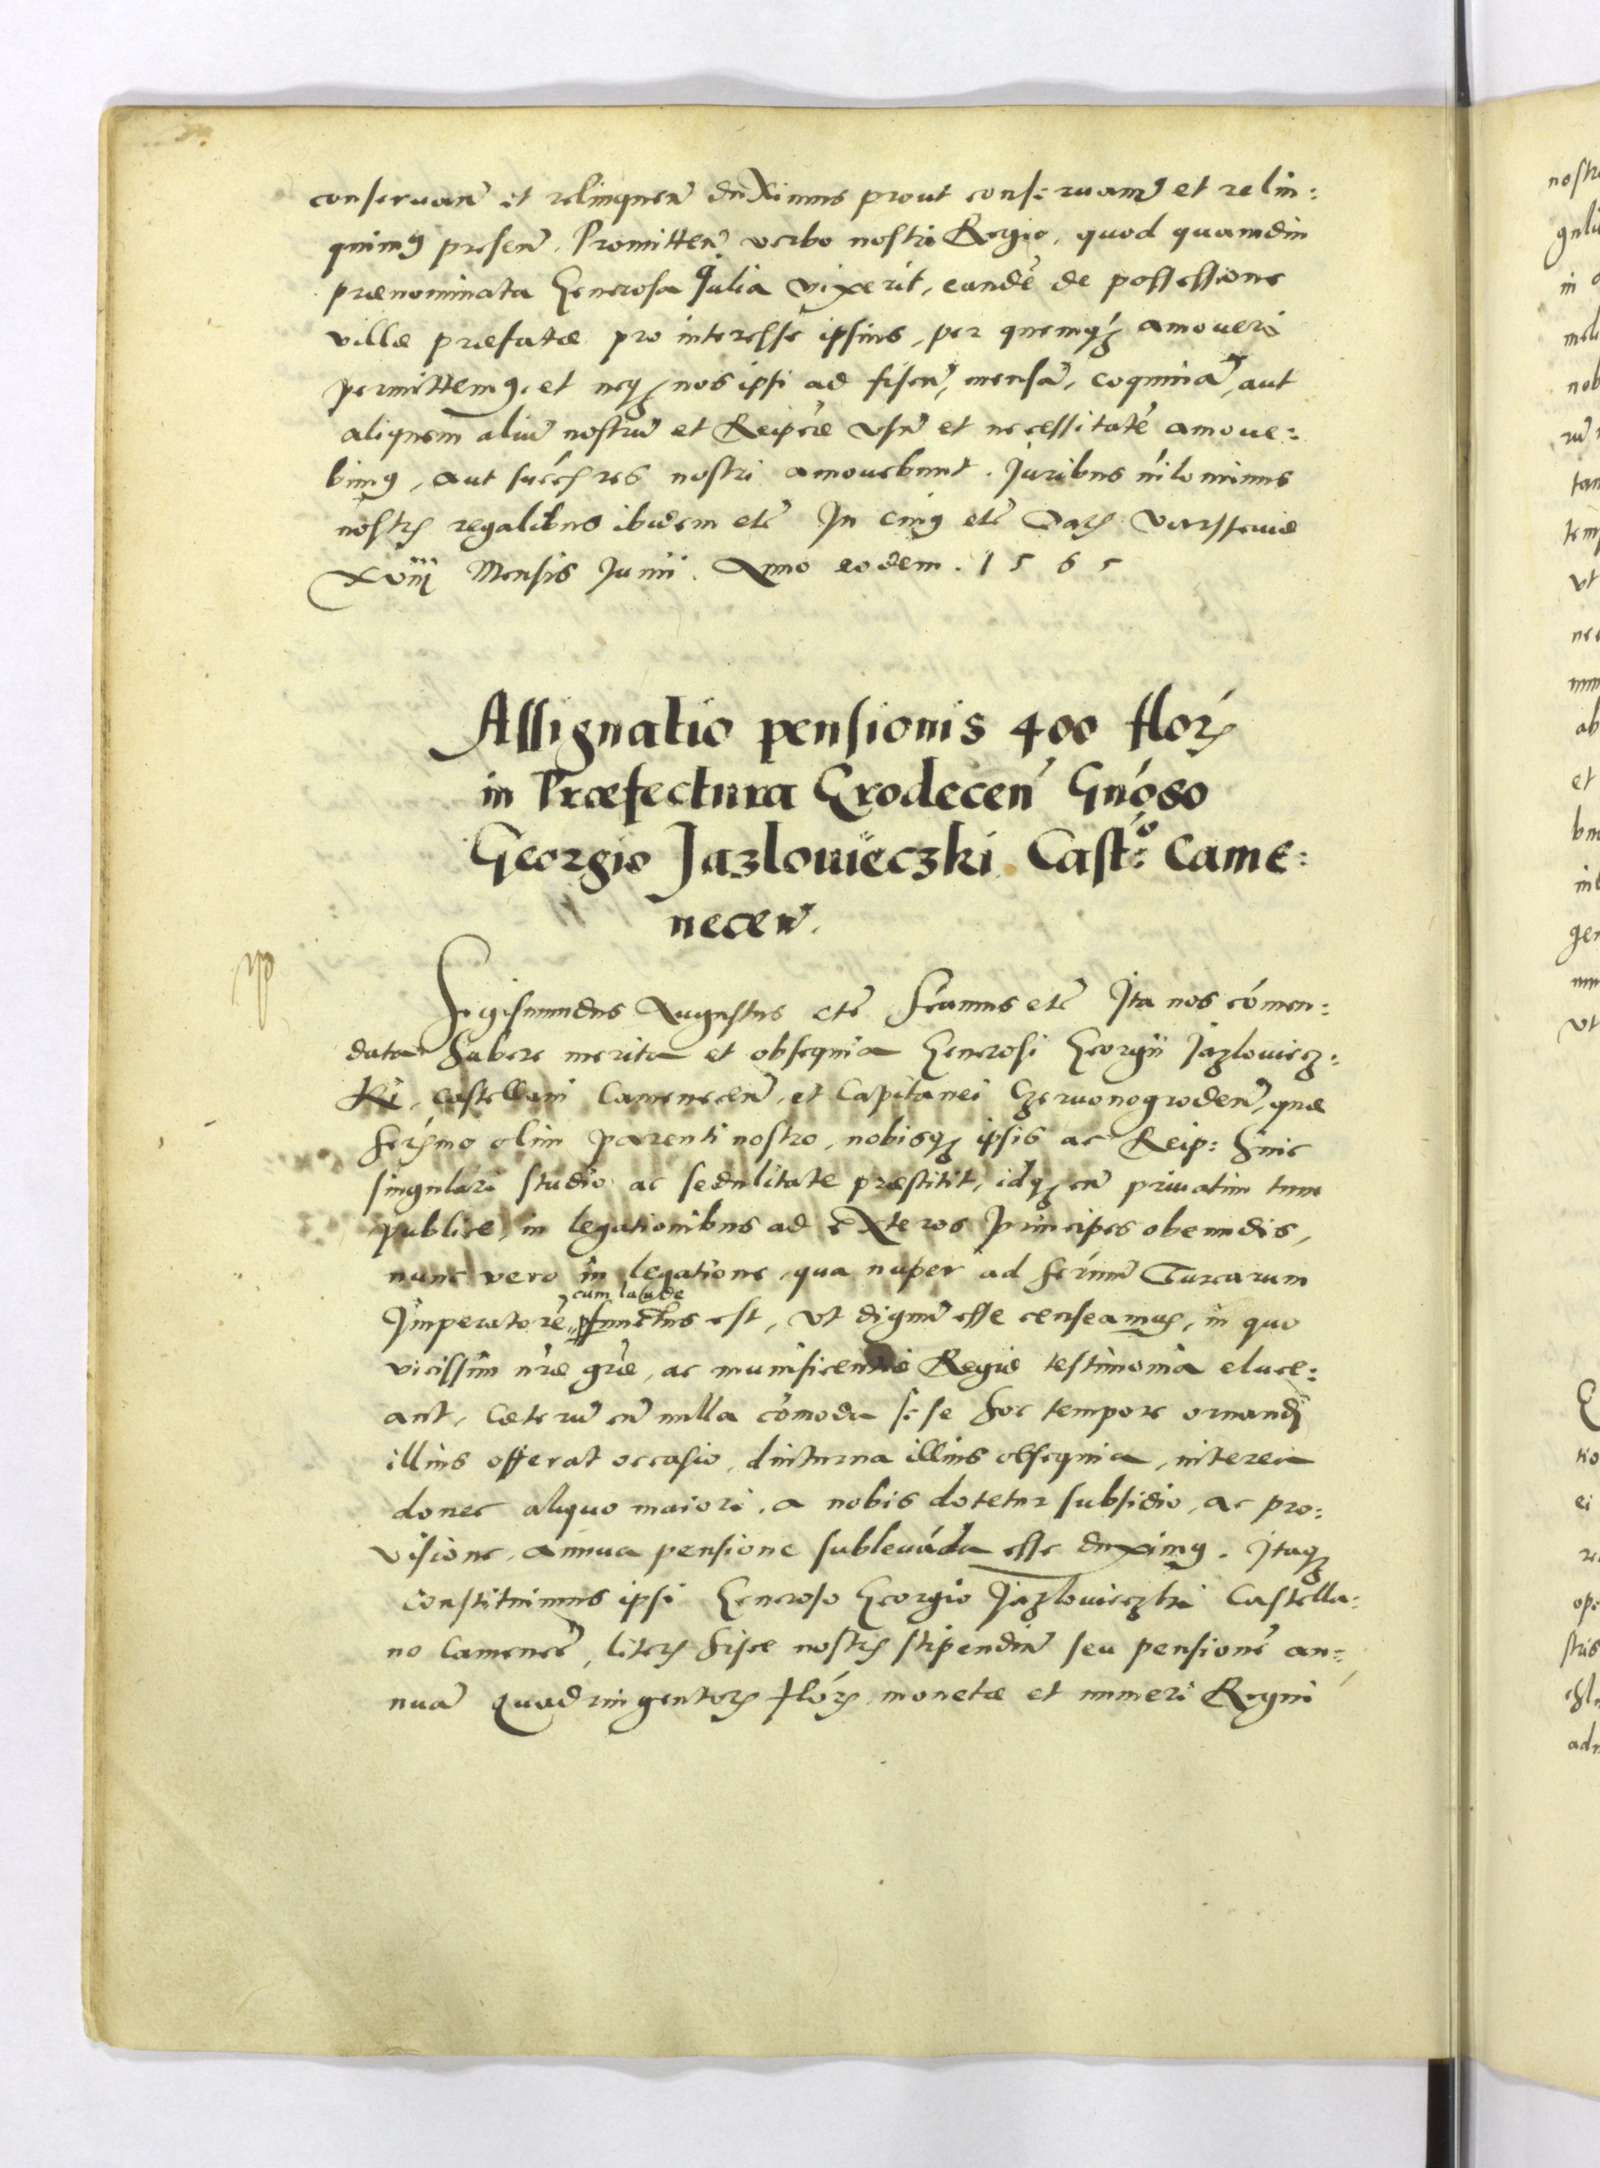 conseruan̄ et relinquen̄ duximus prout conseruam9 et relin:
quim9 presen̄. Promitten̄ verbo nostro Regio, quod quamdiu
prænominata Generosa Julia vixerit, eandē de possessione
villæ præfatæ pro interesse ipsius, per quemq3 amoueri
permittem9, et neq3 nos ipsi ad fiscū, mensā, coquinā, aut
aliquem aliū nostrū et Reip̄cæ vsū et necessitatē amoue:
bim9, aut succes̄res nostri amouebunt. Juribus nilominus
nostris regalibus ibidem etc̄ In cui9 etc̄ Dat̄ Varssouiæ
xviij Mensis Junii. Anno eodem. 1565
Assignatio pensionis 400 flor̄
in Præfectura Grodecen̄ Gnōso
Georgio Jazlowieczki Castno: Came:
necen̄.
Sigismundus Augustus etc̄ Scāmus etc̄ Ita nos cōmen:
data habere merita et obsequia Generosi Georgii Jazlowiecz:
ki, Castellani Camenecen̄, et Capitanei Czerwonogroden̄, quæ
Ser̄mo olim parenti nostro, nobisq3 ipsis ac Reip: huic
singulari studio ac sedulitate præstitit, idq3 cū priuatim tum
publice, in legationibus ad exteros Principes obeundis,
nunc vero in legatione, qua nuper ad Ser̄mū Turcarum
cum laude
Imperatorē functus est, vt dignū esse censeamus, in quo
vicissim nr̄æ gr̄æ, ac munificentiæ Regiæ testimonia eluce:
ant, Cæterū cū nulla cōmoda sese hoc tempore ornandi
illius offerat occasio, diuturna illius obsequia, interea
donec aliquo maiori, a nobis dotetur subsidio, ac pro:
visione, annua pensione subleuāda esse duxim9. Itaq3
constituimus ipsi Generoso Georgio Jazlowieczki Castella:
no Camenec̄, literis hisce nostris stipendiū seu pensionē an:
nuā Quadringentor̄ flor̄ monetæ et numeri Regni